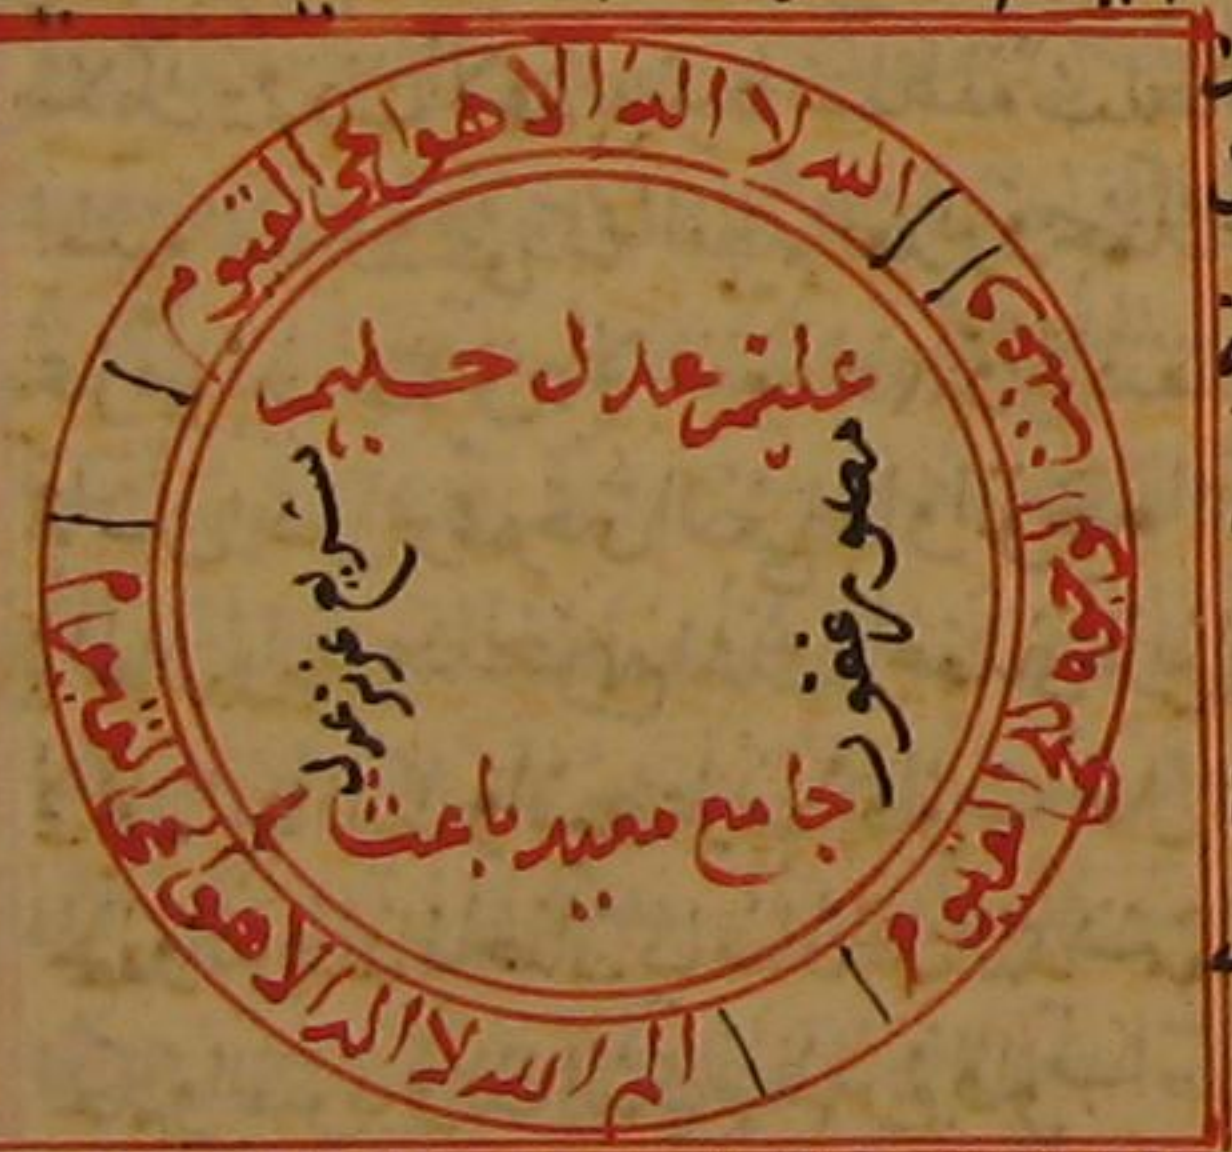 الله لا اله الا هو الحي القيوم
وعنت الوجوه للحي القيوم
الم الله لا اله الا هو الحي القيوم
عليم عدل حليم
سريع عزيز عدل
جامع معيد باعث